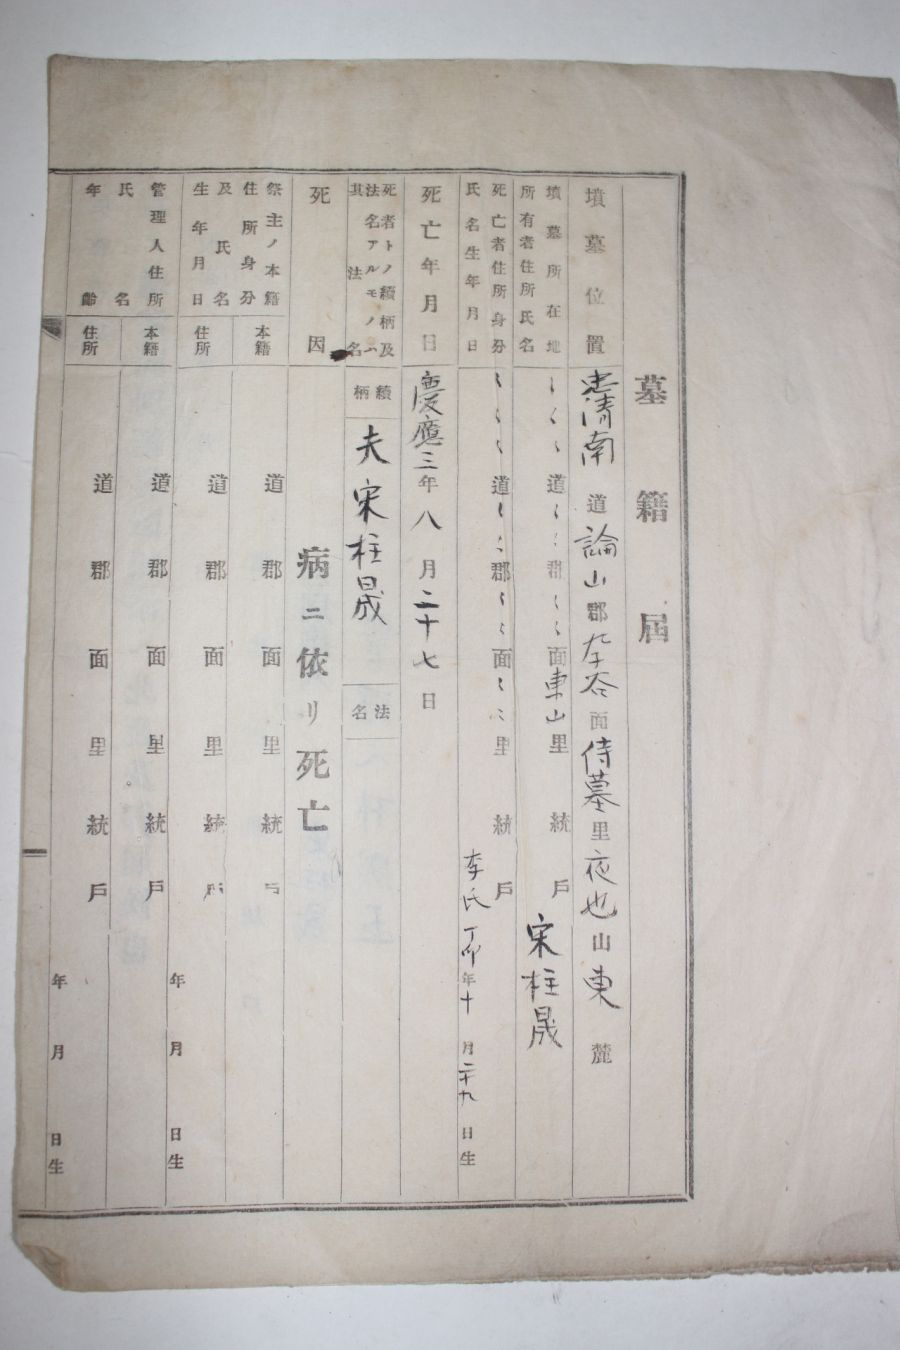 墓籍届
墳墓位置 忠清南道論山郡面侍墓里夜也山東麓
墳墓所在地
所有者住所氏名 〻〻〻道〻〻郡〻〻面東山里 統 戶 宋柱晟
死亡者住所身分
氏名生年月日 〻〻〻道〻〻郡〻〻面〻〻里 統 戶 李氏 丁卯年十月二十九日生
死亡年月日 慶應三年八月二十七日
死者トノ續柄及
法名アルモノハ
其法名 續柄 夫 宋柱晟 法名
死因 病ニ依リ死亡
祭主ノ本籍
住所身分
及氏名
生年月日 本籍 道 郡 面 里 統 戶
住所 道 郡 面 里 統 戶 年 月 日生
管理人住所
氏名
年齡 本籍 道 郡 面 里 統 戶
住所 道 郡 面 里 統 戶 年 月 日生